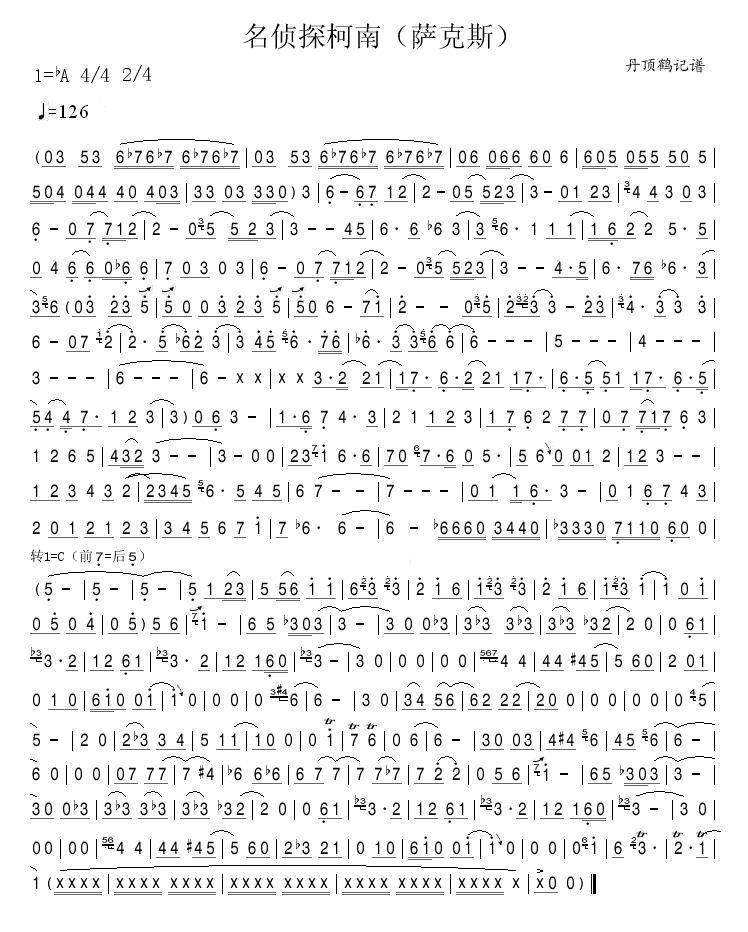 名侦探柯南（萨克斯）
1=♭A 4/4 2/4
丹顶鹤记谱
♩=126
(03 53 6♭76♭7 6♭76♭7|03 53 6♭76♭7 6♭76♭7|06 066 60 6|605 055 50 5
504 044 40 403|33 03 330)3|6-67 12|2-05 523|3-01 23|34 4 3 03
6-07 712|2-035 523|3--45|6· 6 ♭6 3|56· 1 1 1|1 6 2 2 5·5
04 6 6 0♭6 6|7 0 3 0 3|6-07 712|2-035 523|3--4·5|6· 76 ♭6·3
356(03 23 5|5 00 3 2 3 5|50 6-71|2--035|2323 3-23|34· 3 3 3
6-07 12|2·5 ♭62 3|3 45 56· 76|♭6·3 356 6|6---|5---|4---
3---|6---|6-x x|x x 3·2 21|17· 6·2 21 17·|6·5 51 17· 6·5
54 4 7· 1 2 3|3)0 6 3-|1·6 7 4·3|2 1 1 2 3|1 7 6 2 7 7|07 717 6 3
1 2 6 5|432 3---|3-0 0|2371 6·6|70 67·6 0 5·|5 60 01 2|12 3--
1 2 3 4 3 2|2345 56· 5 4 5|6 7--|7--|01 16·3-|01 6 7 4 3
2 0 1 2 1 2 3|3 4 5 6 7 1|7 ♭6· 6-|6-♭6660 3440|♭3330 7110 60 0
转1=C（前7=后5）
(5-|5-|5-|5·1 23|5 56 1 1|6 233|232 1 6|1233 232|2 1 6|1233 1|1 0 1
0 5 0 4|0 5)5 6|71-|6 5 ♭303|3-|3 0 0♭3|3♭3 3♭3|3♭3 ♭32|2 0|0 61
♭33·2|12 61|♭33·2|12 160|♭33-|3 0|0 0|0 0|5674 4|44 #45|5 60|2 01
0 1 0|610 01|1 0|0 0|0 3#46|6-|3 0|34 56|62 22|20 0|0 0|0 0|0 45
5-|2 0|2♭3 3 4|5 11|10 0|0 1|7 6|0 6|6-|30 03|4#4 56|45 56|6-
6 0|0 0|07 77|7 #4|♭6 6♭6|6 7 7|7 7♭7|7 2 2|0 5 6|71-|65 ♭303|3-
30 0♭3|3♭3 3♭3|3♭3 ♭32|2 0|0 61|♭33·2|12 61|♭33·2|12 160|♭33-|3 0
00|00|564 4|44 #45|5 60|2♭3 21|0 10|610 01|1 0|0 0|0 61|6 23·|2·1
1(xxxx|xxxx|xxxx|xxxx|xxxx|xxxx x|x0 0)